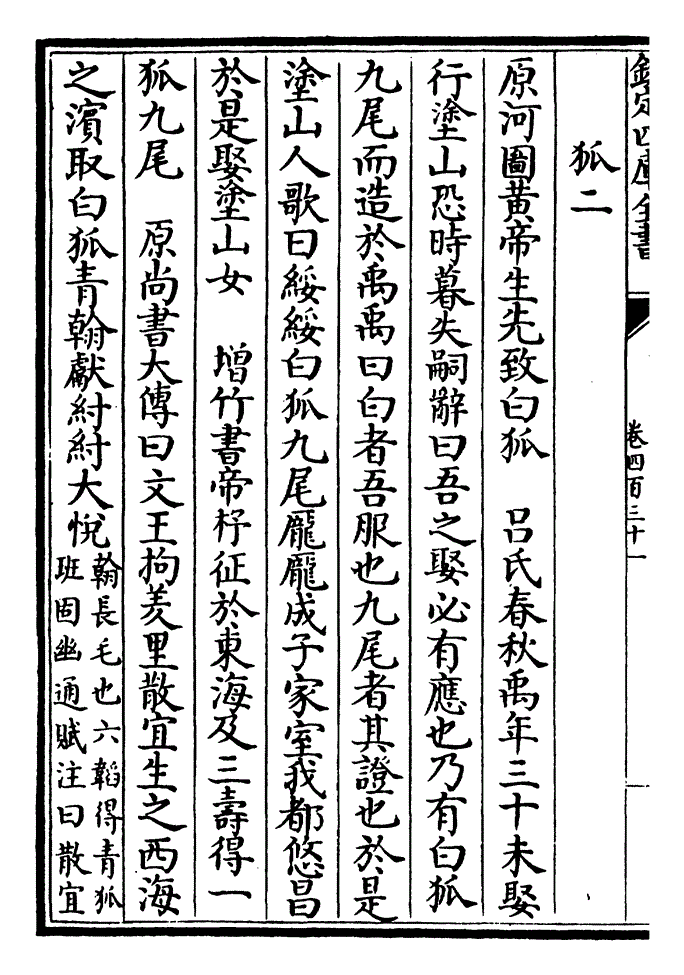 欽定四庫全書
卷四百三十一
狐二
原河圖黃帝生先致白狐　呂氏春秋禹年三十未娶
行塗山恐時暮失嗣辭曰吾之娶必有應也乃有白狐
九尾而造於禹禹曰白者吾服也九尾者其證也於是
塗山人歌曰綏綏白狐九尾龐龐成子家室我都悠昌
於是娶塗山女　增竹書帝杼征於東海及三壽得一
狐九尾　原尚書大傳曰文王拘羑里散宜生之西海
之濱取白狐青翰獻紂紂大悅
翰長毛也六韜得青狐
班固幽通賦注曰散宜